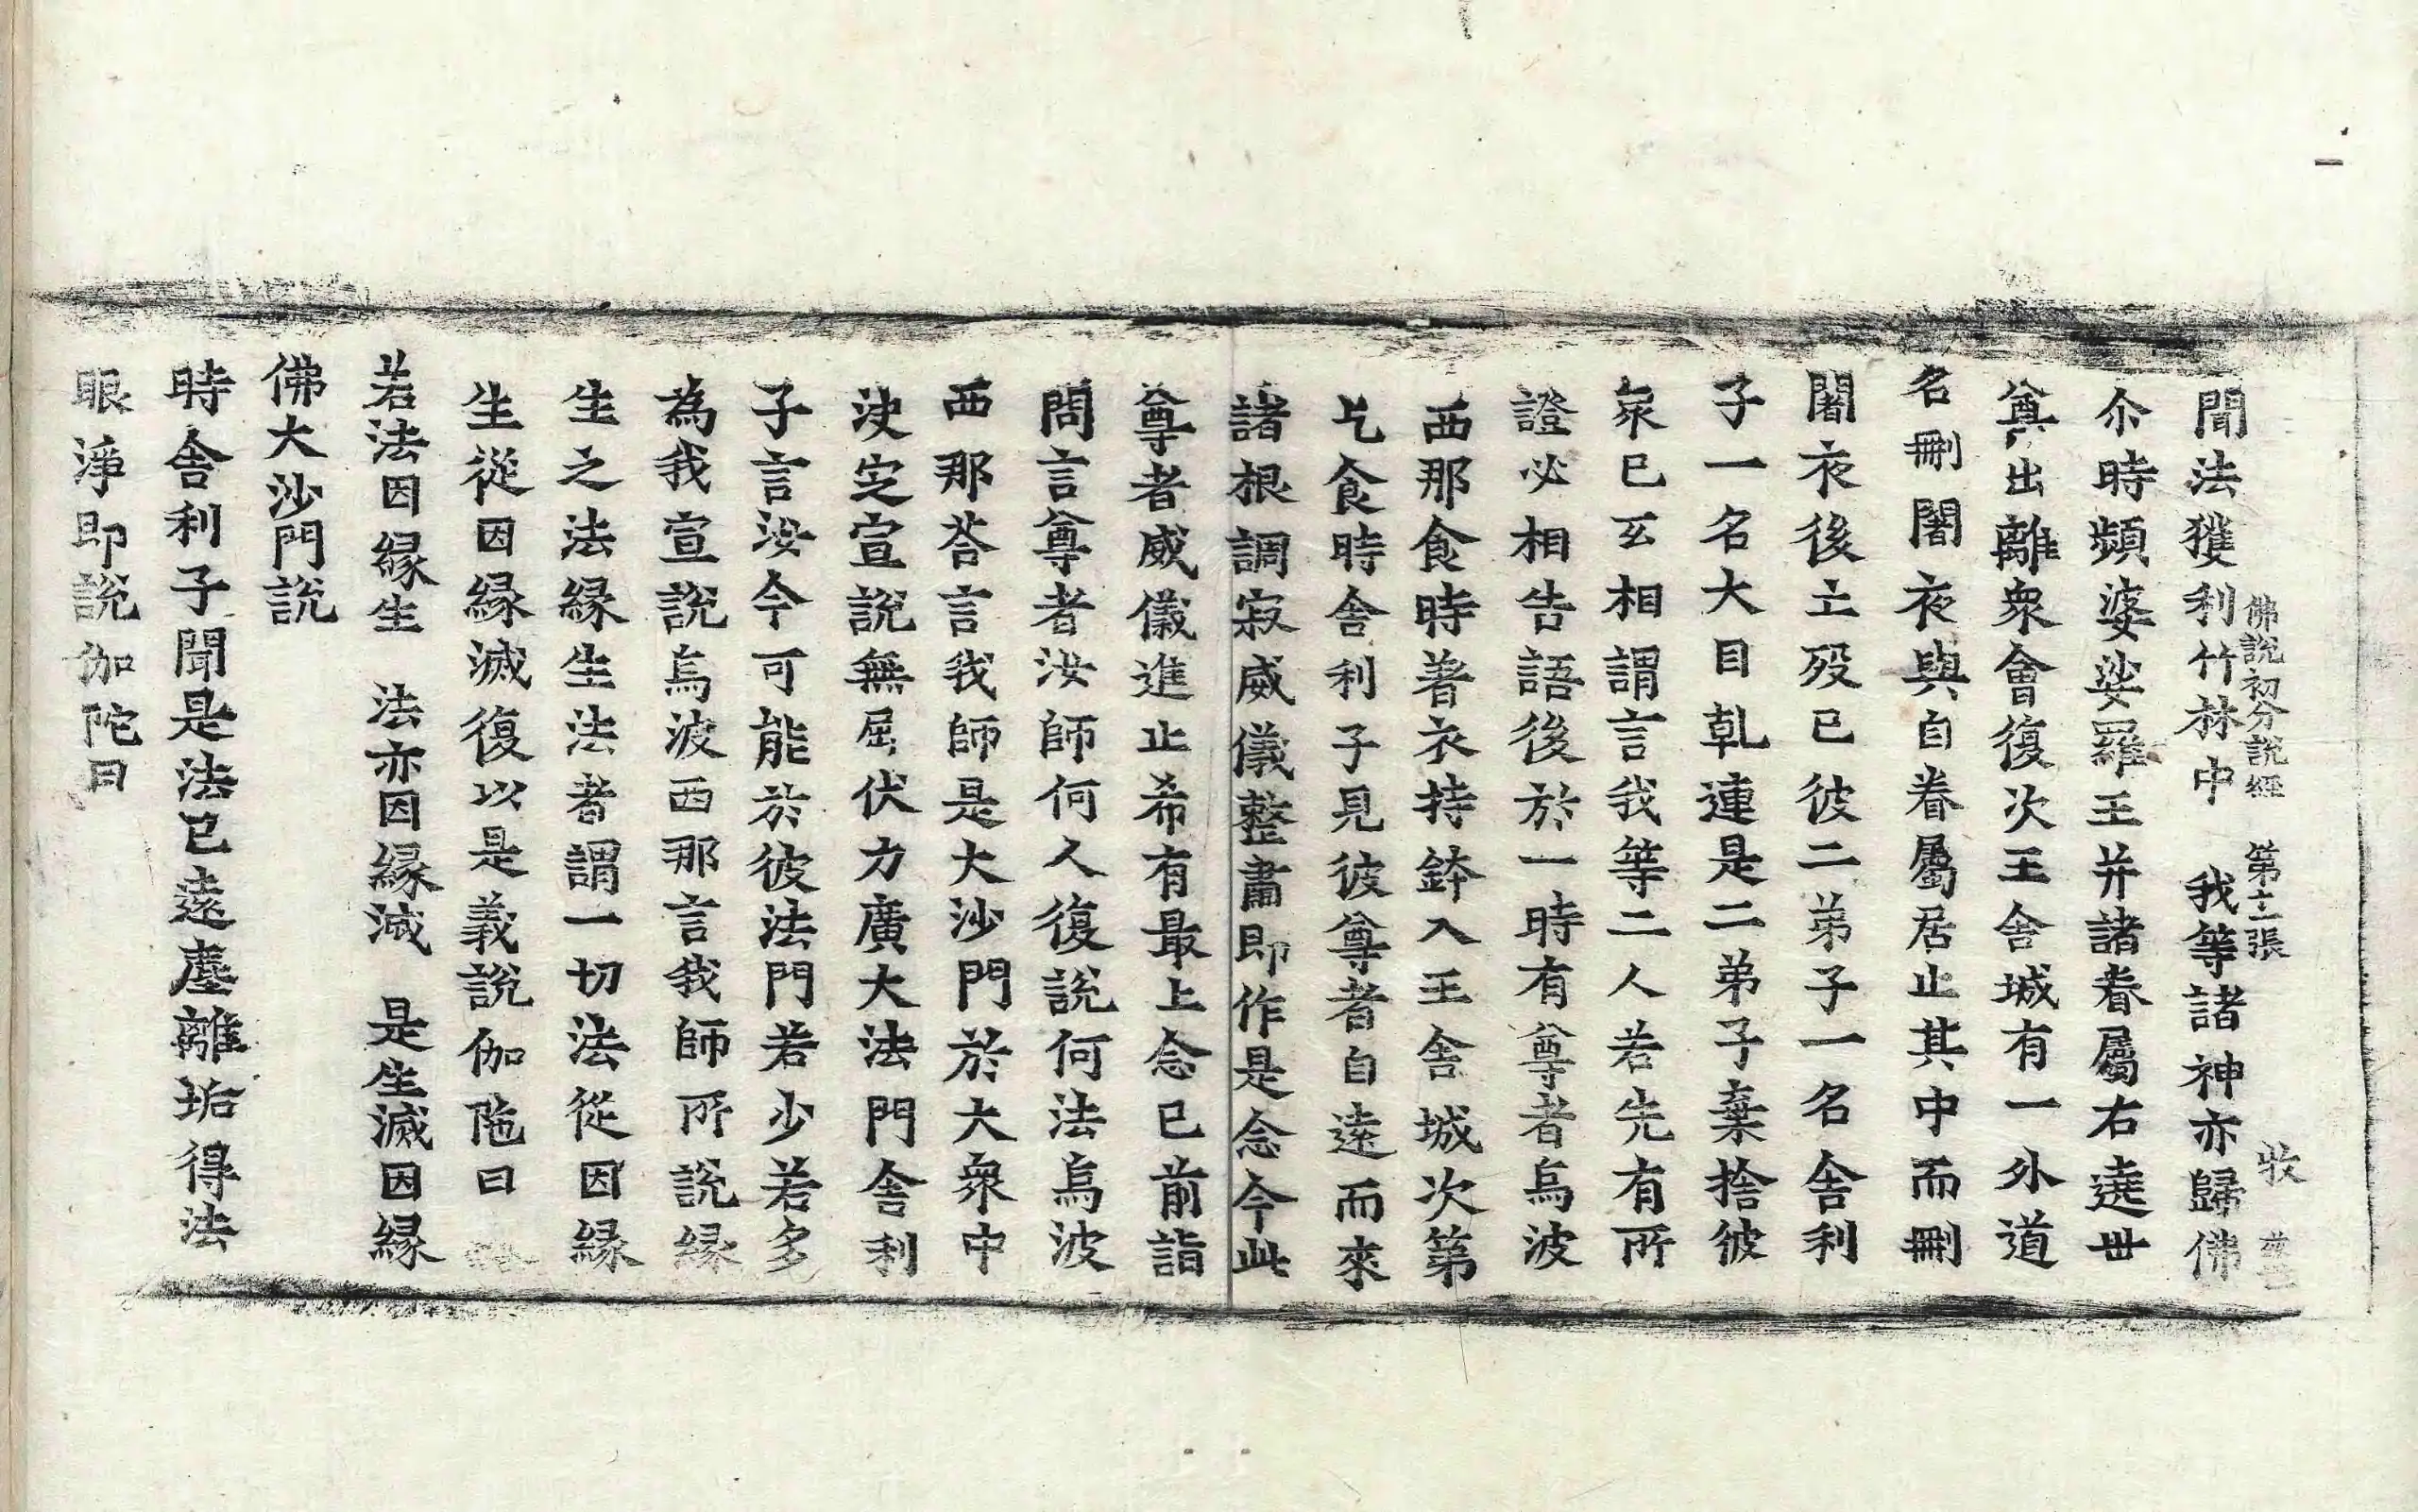 佛說初分說經 第十一張 收
聞法獲利竹林中 我等諸神亦歸佛
尒時頻婆娑羅王并諸眷屬右遶世
尊出離衆會復次王舍城有一外道
名刪闍夜與自眷屬居止其中而刪
闍夜後亡歿已彼二弟子一名舍利
子一名大目乹連是二弟子棄捨彼
衆已互相謂言我等二人若先有所
證必相告語後於一時有尊者烏波
西那食時著衣持鉢入王舍城次第
乞食時舍利子見彼尊者自遠而來
諸根調寂威儀整肅即作是念今此
尊者威儀進止希有最上念已前詣
問言尊者汝師何人復說何法烏波
西那荅言我師是大沙門於大衆中
決定宣說無屈伏力廣大法門舍利
子言汝今可能於彼法門若少若多
為我宣說烏波西那言我師所說緣
生之法緣生法者謂一切法從因緣
生從因緣滅復以是義說伽陁曰
若法因緣生 法亦因緣滅 是生滅因緣
佛大沙門說
時舍利子聞是法已遠塵離垢得法
眼淨即說伽陀曰